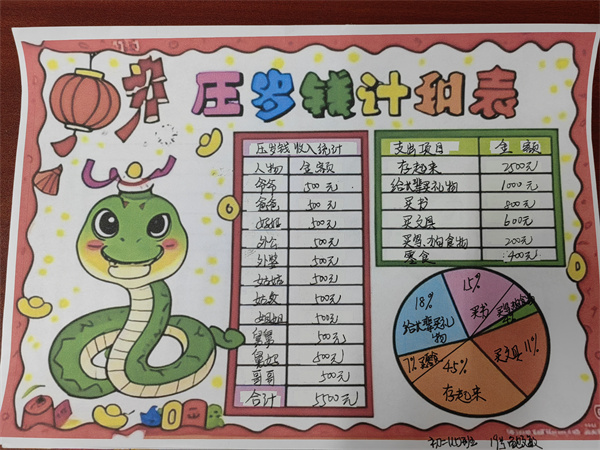 压岁钱计划表
压岁钱收入统计
人物 金额
爷爷 500元
爸爸 500元
妈妈 500元
外公 500元
外婆 500元
姑姑 500元
500元
姐姐 500元
舅舅 500元
舅妈 500元
哥哥 500元
合计 5500元
支出项目 金额
存起来 2500元
给长辈买礼物 1000元
买书 800元
买文具 600元
200元
零食 400元
15%
买书
18%
给长辈买礼物
买文具 11%
7%
45%
存起来